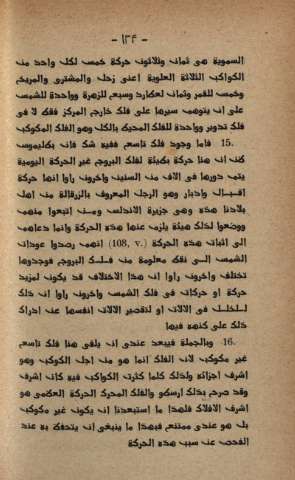 - ١٣٤ -
السموية هي ثمانى وثلاثون حركة خمس لكل واحد من
الكواكب الثلاثة العلوية اعنى زحل والمشترى والمريخ
وخمس للقمر وثمانى لعطارد وسبع للزهرة وواحدة للشمس
على ان يتوهم سيرها على فلك خارج المركز فقط لا فى
فلك تدوير وواحدة للفلك المحيط بالكل وهو الفلك المكوكب
15. فاما وجود فلك تاسع ففيه شك فان بطليموس
ظن ان هنا حركة بطيئة لفلك البروج غير الحركة اليومية
يتم دورها فى الاف من السنين واخرون راوا انها حركة
اقبال وادبار وهو الرجل المعروف بالزرقالة من اهل
بلادنا هذه وهى جزيرة الاندلس ومن اتبعوا منهم
ووضعوا لذلك هيئة يلزم عنها هذه الحركة وانما دعاهم
الى اثبات هذه الحركة (108, v.) انهم رصدوا عودات
الشمس الى نقط معلومة من فلك البروج فوجدوها
تختلف واخرون راوا ان هذا الاختلاف قد يكون لمزيد
حركة او حركات فى فلك الشمس واخرون راوا ان ذلك
لخلل فى الالات او لتقصير الالات انفسها عن ادراك
ذلك على كنهه فيها
16. وبالجملة فيبعد عندى ان يلفى هنا فلك تاسع
غير مكوكب لان الفلك انما هو من اجل الكوكب وهو
اشرف اجزائه ولذلك كلما كثرت الكواكب فيه كان اشرف
وقد صرح بذلك ارسطو والفلك المحرك الحركة العظمى هو
اشرف الافلاك فلهذا ما استبعدنا ان يكون غير مكوكب
بل هو عندى ممتنع فهذا ما ينبغى ان يتحفظ به عند
الفحص عن سبب هذه الحركة